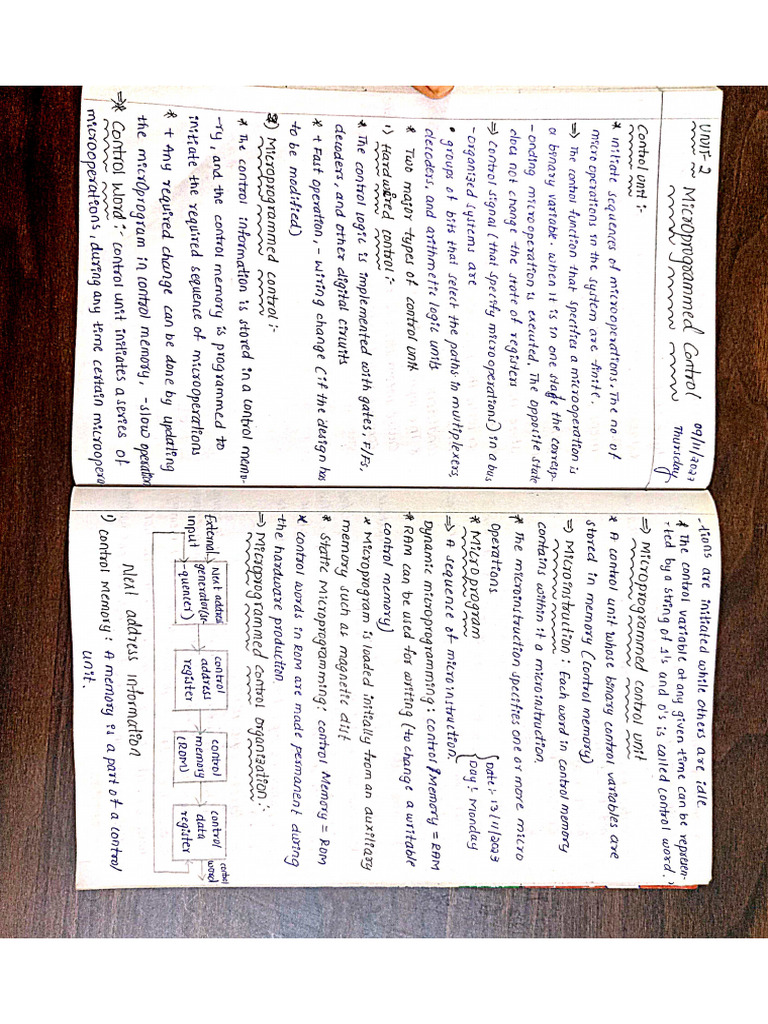 UNIT-2 Microprogrammed Control 09/11/2023
Thursday
Control unit :-
* Initiate sequences of microoperations, The no of
micro operations in the system are finite.
⇒ The control function that specifies a microoperation is
a binary variable. when it is in one state the corresp-
-onding microoperation is executed. The opposite state
does not change the state of registers
⇒ control signal (that specify microoperations) in a bus
-organized systems are
• groups of bits that select the paths in multiplexers,
decoders, and arithmetic logic units
* Two major types of control unit
1) Hardwired control :-
* The control logic is implemented with gates, F/Fs,
decoders, and other digital circuits
* + Fast operation, - wiring change (if the design has
to be modified)
2) Microprogrammed control :-
* The control information is stored in a control memo-
-ry, and the control memory is programmed to
initiate the required sequence of microoperations
* + Any required change can be done by updating
the microprogram in control memory, - slow operation
⇒* Control Word :- control unit initiates a series of
microoperations, during any time certain microopera
-tions are initiated while others are idle.
* The control variable at any given time can be represen-
-ted by a string of 1's and 0's is called control word.
⇒ Microprogrammed control unit
* A control unit whose binary control variables are
stored in memory (control memory)
⇒ Microinstruction : Each word in control memory
contains within it a microinstruction.
* The microinstruction specifies one or more micro
operations
Date :- 13/11/2023
* Microprogram
Day :- Monday
⇒ A sequence of microinstruction.
Dynamic microprogramming : control Memory = RAM
* RAM can be used for writing (to change a writable
control memory)
* Microprogram is loaded initially from an auxiliary
memory such as magnetic disk
* Static Microprogramming : control Memory = ROM
* control words in ROM are made permanent during
the hardware production
⇒ Microprogrammed control organization :-
External input
Next address generator (se-quencer)
control address register
control memory (ROM)
control data register
control word
Next address information
1) control memory : A memory is a part of a control
unit.